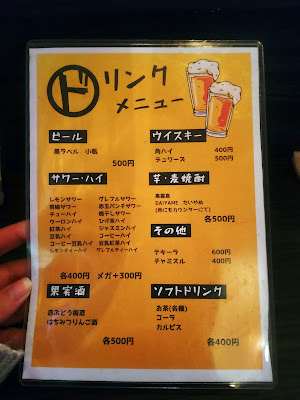 ドリンク
メニュー
ビール
黒ラベル 小瓶
500円
サワー・ハイ
レモンサワー
チューハイ
ウーロンハイ
紅茶ハイ
豆乳ハイ
コーヒー豆乳ハイ
レモンティーハイ
グレフルサワー
赤玉パンチサワー
梅干しサワー
ひげ茶ハイ
ジャスミンハイ
コーヒーハイ
豆乳紅茶ハイ
グレフルティーハイ
各400円 メガ+300円
果実酒
赤ぶどう梅酒
はちみつりんご酒
各500円
ウイスキー
角ハイ 400円
デュワーズ 500円
芋・麦焼酎
黒霧島
DAIYAME だいやめ
(他にもカウンターにて)
各500円
その他
テキーラ 600円
チャミスル 400円
ソフトドリンク
お茶(各種)
コーラ
カルピス
各400円